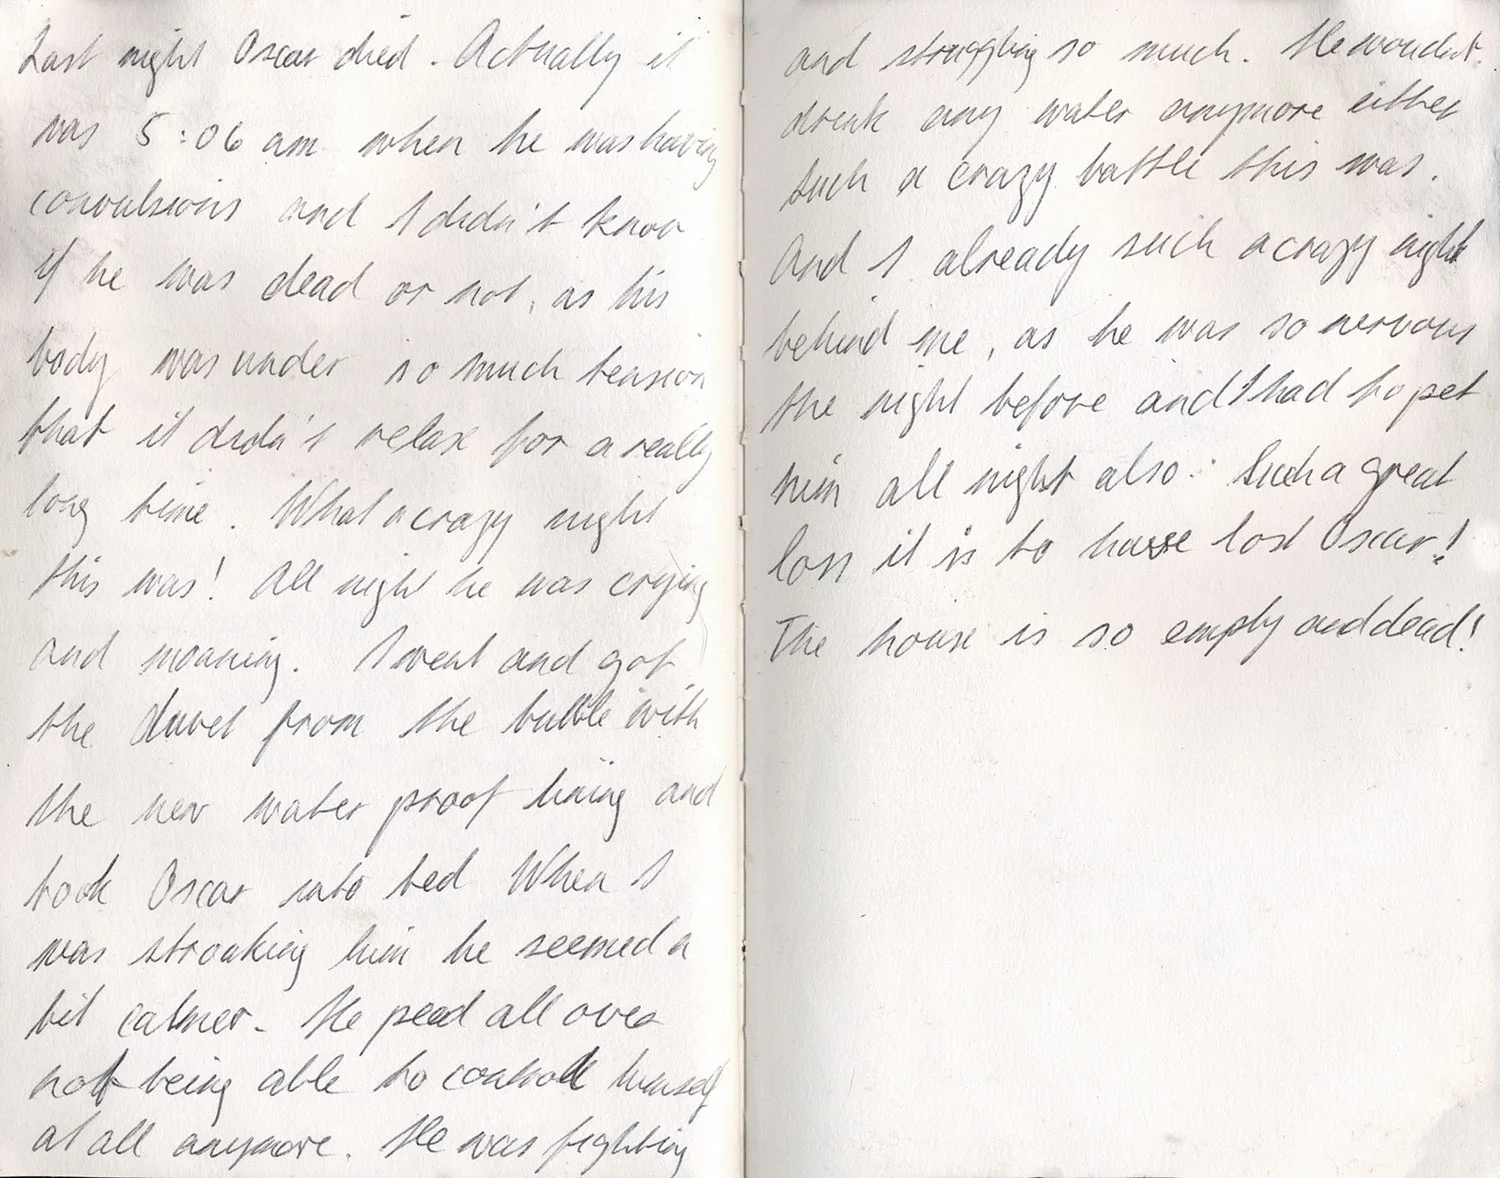 Last night Oscar died. Actually it
was 5:06 am when he was having
convulsions and I didn't know
if he was dead or not, as his
body was under so much tension
that it didn't relax for a really
long time. What a crazy night
this was! All night he was crying
and moaning. I went and got
the duvet from the bubble with
the new water proof lining and
took Oscar into bed When I
was stroaking him he seemed a
bit calmer. He peed all over
not being able to controll himself
at all anymore. He was fighting
and struggling so much. He wouldn't
drink any water anymore either
such a crazy battle this was.
And I already such a crazy night
behind me, as he was so nervous
the night before and I had to pet
him all night also. Such a great
loss it is to have lost Oscar!
The house is so empty and dead!